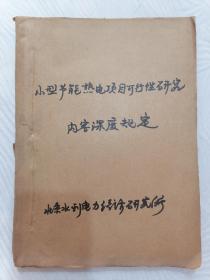 小型节能热电项目可行性研究
内容深度规定
水利电力经济研究所